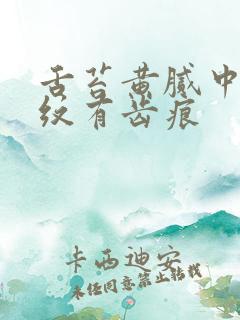 舌苔黄腻中
纹有齿痕
卡西迪安
未经同意禁止转载